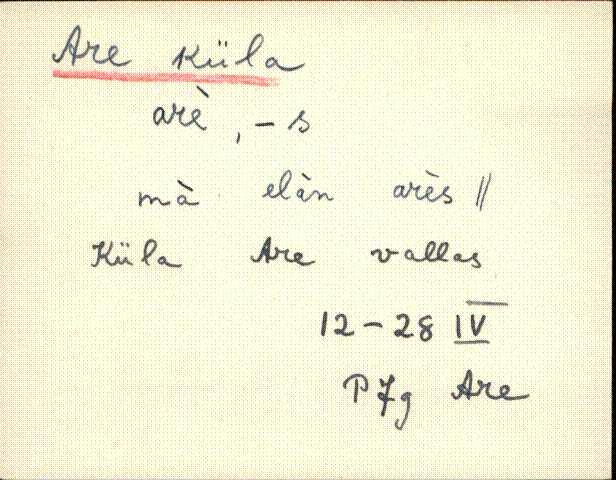 Are küla
arè, -s
mà elàn arès ||
Küla Are vallas
12-28 IV
P Jg Are